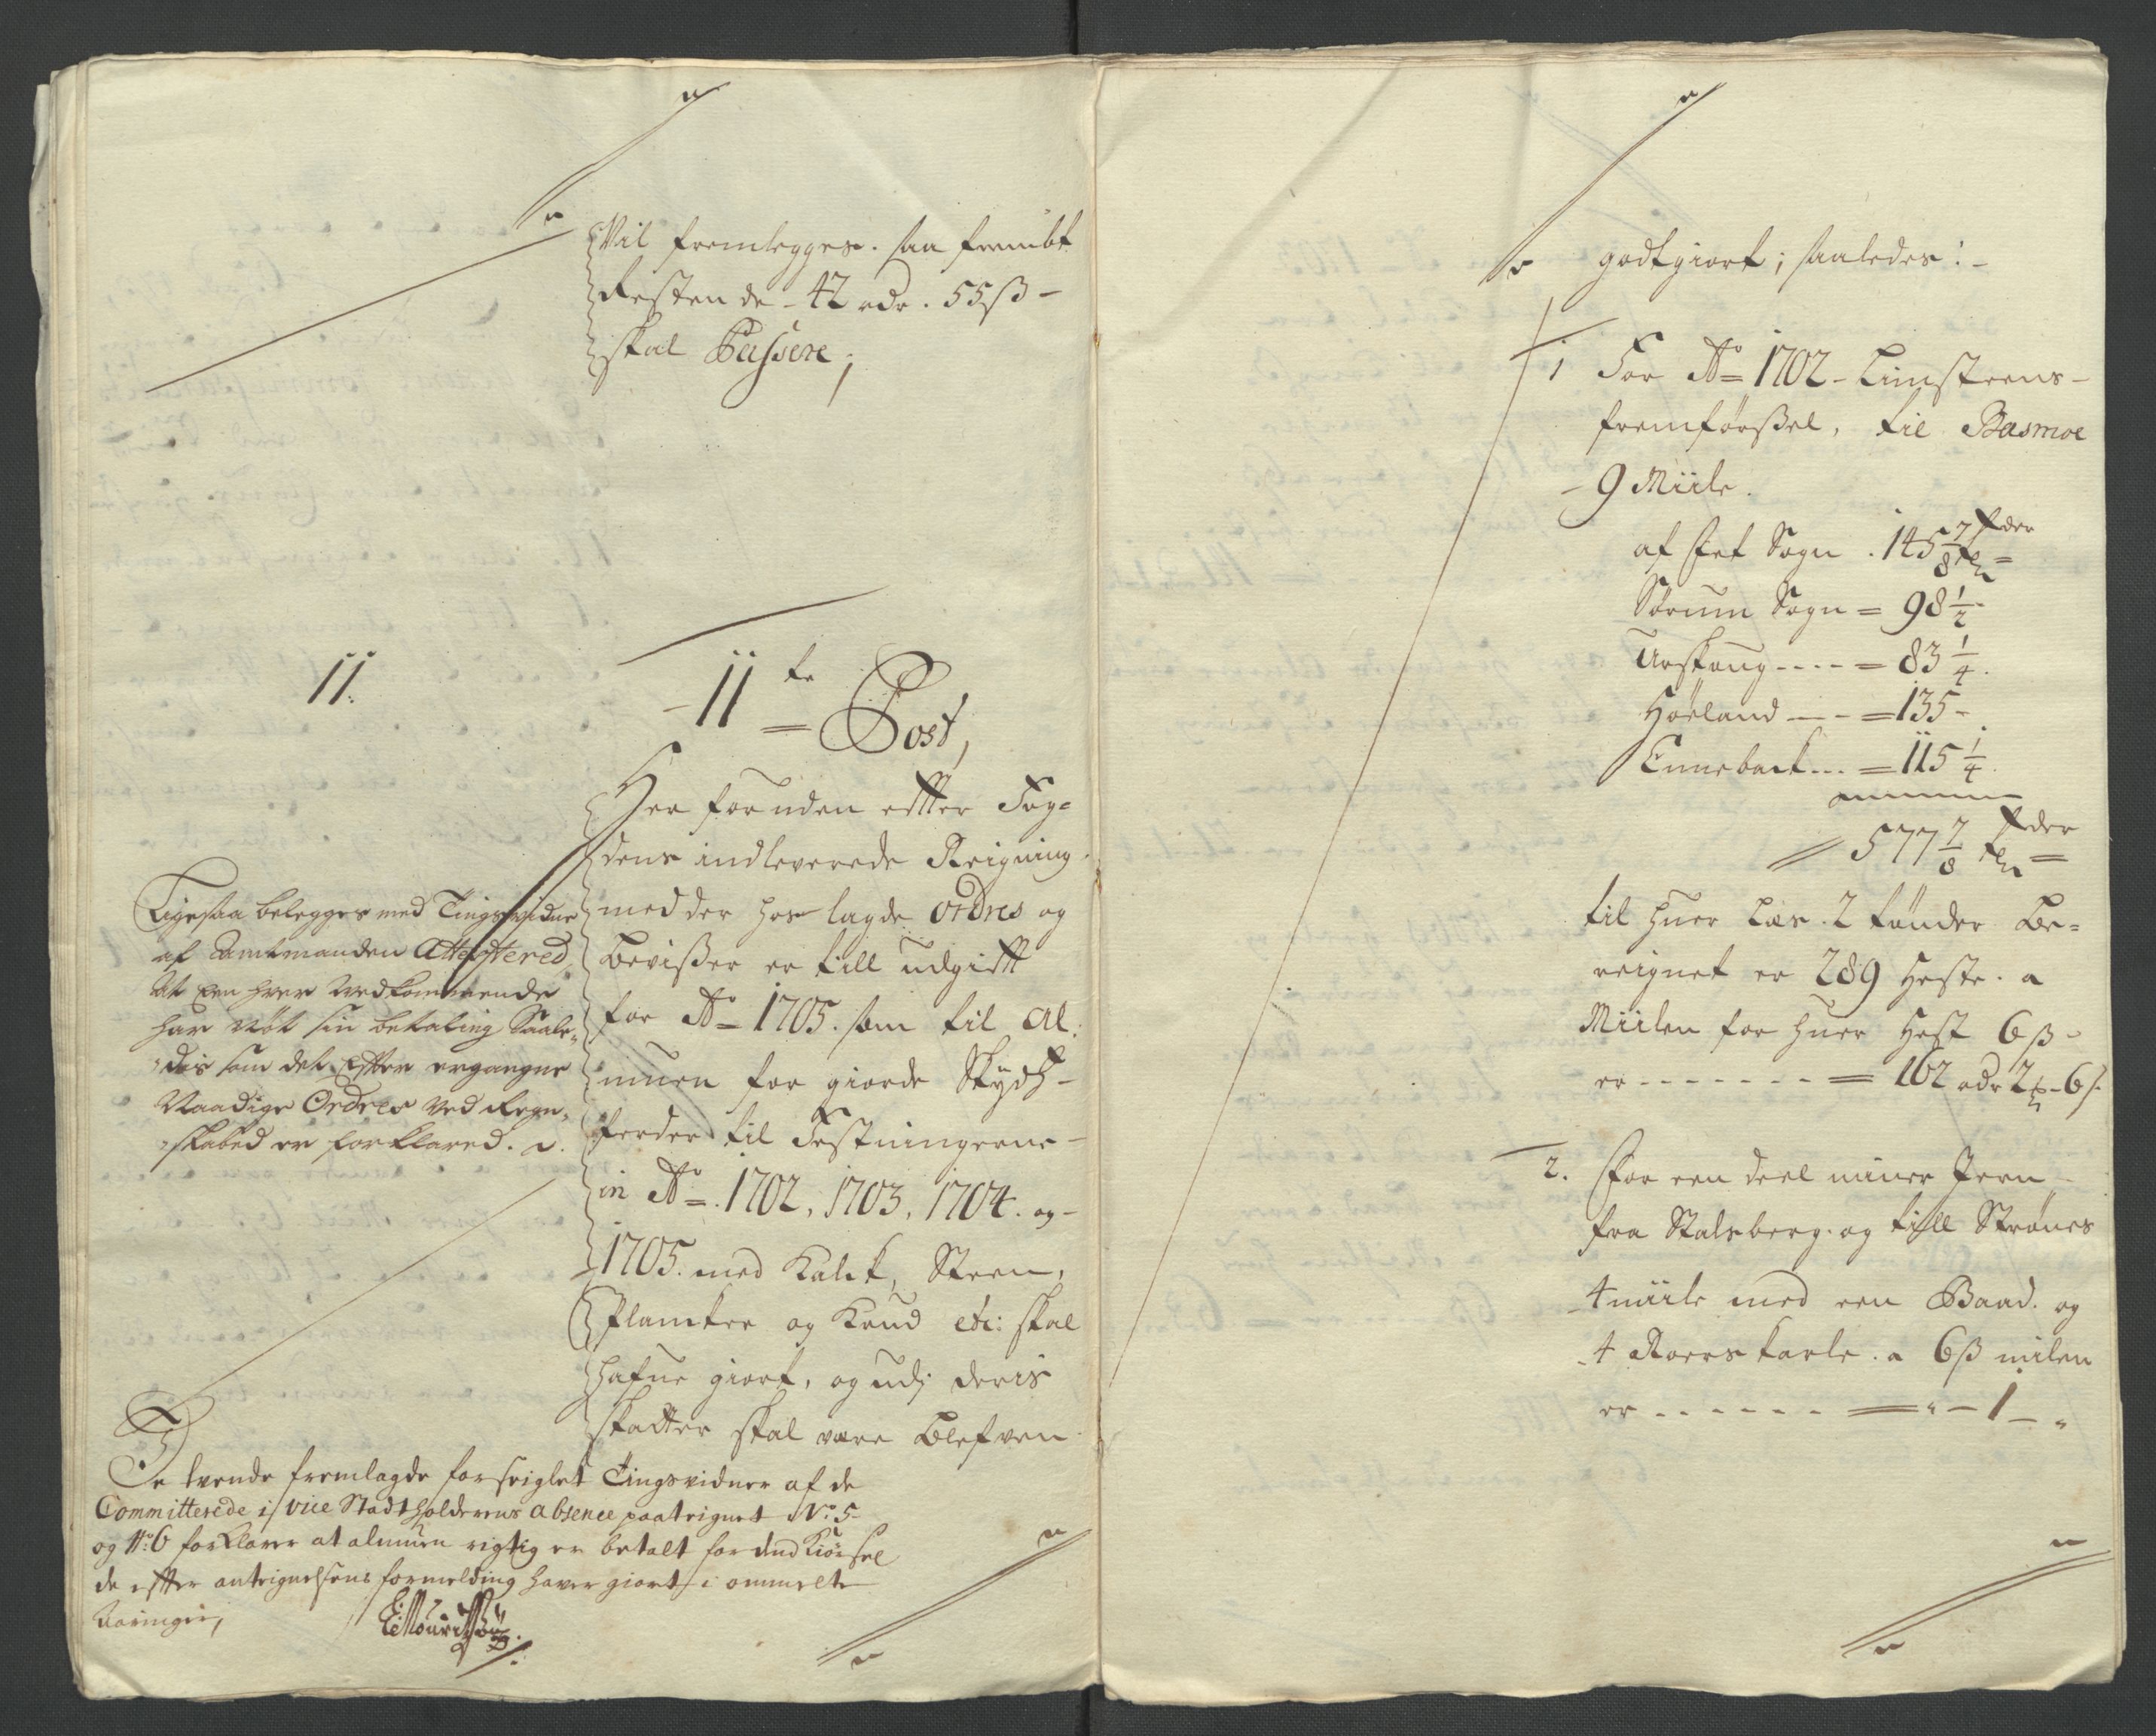 Vil fremlegges. saa fremt
Resten de - 42 rdr. 55 ß -
skal Passere,
11.
- 11te Post,
Her foruden effter Fog-
dens indleverede Reigning
med der hos lagde ordres og
Bevißer er till udgifft
for Ao 1705. som til Al-
muen for giorde Skydtz-
ferder til Festningerne -
in Ao 1702, 1703, 1704. og -
1705. med Kalck, Steen,
Plancker og Krud etc: skal
hafue giort, og udj deris
skatter skal være Blefven
Ligesaa belegges med Tingsvidne
af Amtmanden Attestered
at Een hver Vedkommende
har Nöt sin betaling Saale-
des som det Effter ergangne
Naadige Ordres ved Regn-
skabed er forklared.
De tvende fremlagde forseiglet Tingsvidner af de
Committerede i vice Stadtholderens absence paateignet No. 5
og No: 6 forklarer at almuen rigtig er betalt for dend Kiörsel
de effter antegnelsens formelding haver giort i ommelte
Aaringer,
godtgiort; saaledes: -
1 For Ao 1702 - Limsteens -
fremförßel, til Basmoe
- 9 Miile.
af Fet Sogn . 145 7/8 tdr
Sörum Sogn = 98 1/2
Urskoug - - - - = 83 1/4.
Höeland - - - = 135 -
Enneback - - - = 115 1/4.
577 7/8 tdr =
til huer Læs. 2 tönder Be-
reignet er 289 Heste. a
Miilen for huer Hest 6 ß -
er - - - - - - - = 162 rdr 2 - 6 ß.
2. For een deel miner Jern
fra Stalsberg. og till Strönes
4 miile med een Baad. og
4 Roers karle. a 6 ß milen
er - - - - - - = " - 1 - "